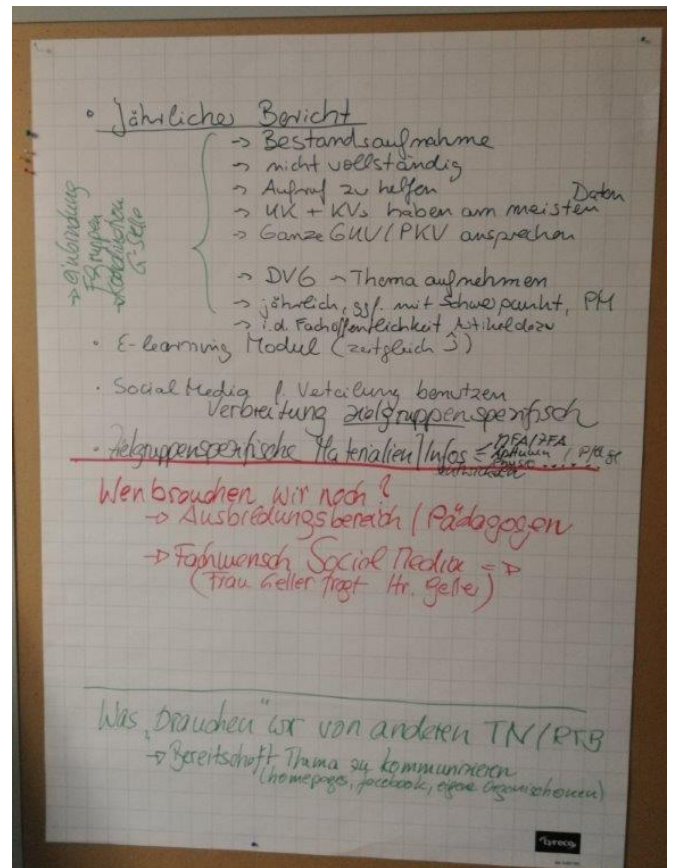 • Jährlicher Bericht
→ Bestandsaufnahme
→ nicht vollständig
→ Aufruf zu helfen
→ UK + KVs haben am meisten Daten
→ Ganze GUV / PKV ansprechen
→ DVG → Thema aufnehmen
→ jährlich, ggf. mit Schwerpunkt, PM
→ i.d. Fachöffentlichkeit Artikel dazu
→ Einbindung
• E-learning Modul (zeitgleich)
• Social Media f. Verteilung benutzen
Verbreitung zielgruppenspezifisch
• Zielgruppenspezifische Materialien / Infos = MFA/ZFA
/ Pflege
Physio.....
entwickeln
Wen brauchen wir noch?
→ Ausbildungsbereich / Pädagogen
→ Fachmensch Social Media =
(Frau Geller fragt Hr. Geller)
Was "brauchen" wir von anderen TN / RTB
→ Bereitschaft Thema zu kommunizieren
(homepages, facebook, eigene Organisationen)